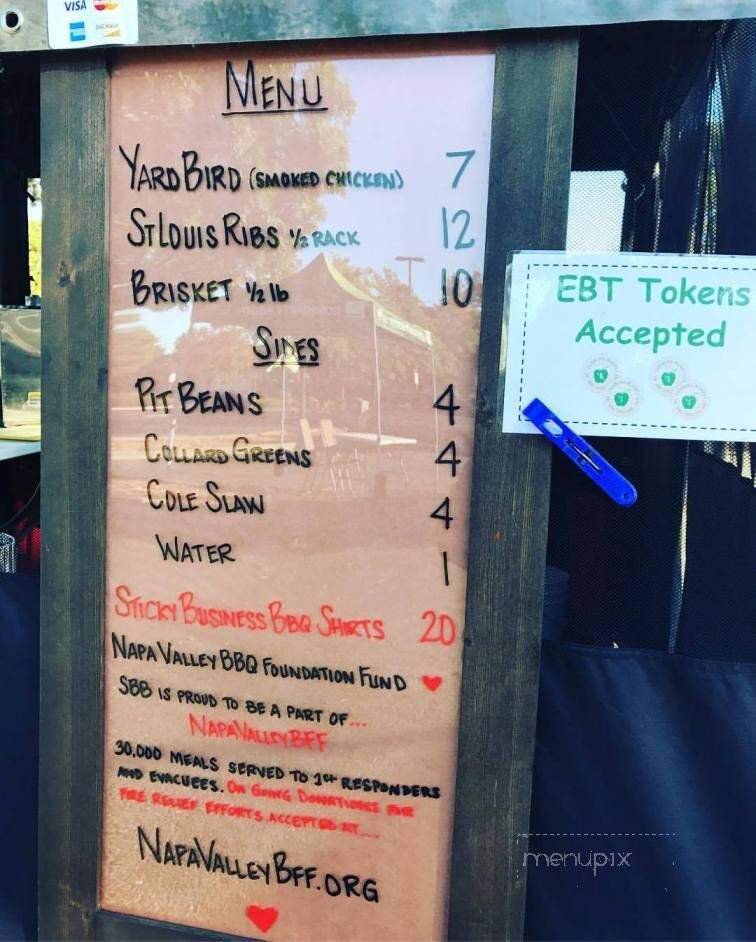 VISA
DISCOVER
MENU
YARD BIRD (SMOKED CHICKEN) 7
ST LOUIS RIBS ½ RACK 12
BRISKET ½ lb 10
SIDES
PIT BEANS 4
COLLARD GREENS 4
COLE SLAW 4
WATER 1
STICKY BUSINESS BBQ SHIRTS 20
NAPA VALLEY BBQ FOUNDATION FUND
SBB IS PROUD TO BE A PART OF...
NAPAVALLEYBFF
30,000 MEALS SERVED TO 1st RESPONDERS
AND EVACUEES. ON GOING DONATIONS FOR
FIRE RELIEF EFFORTS ACCEPTED AT....
NAPAVALLEYBFF.ORG
EBT Tokens
Accepted
menupix